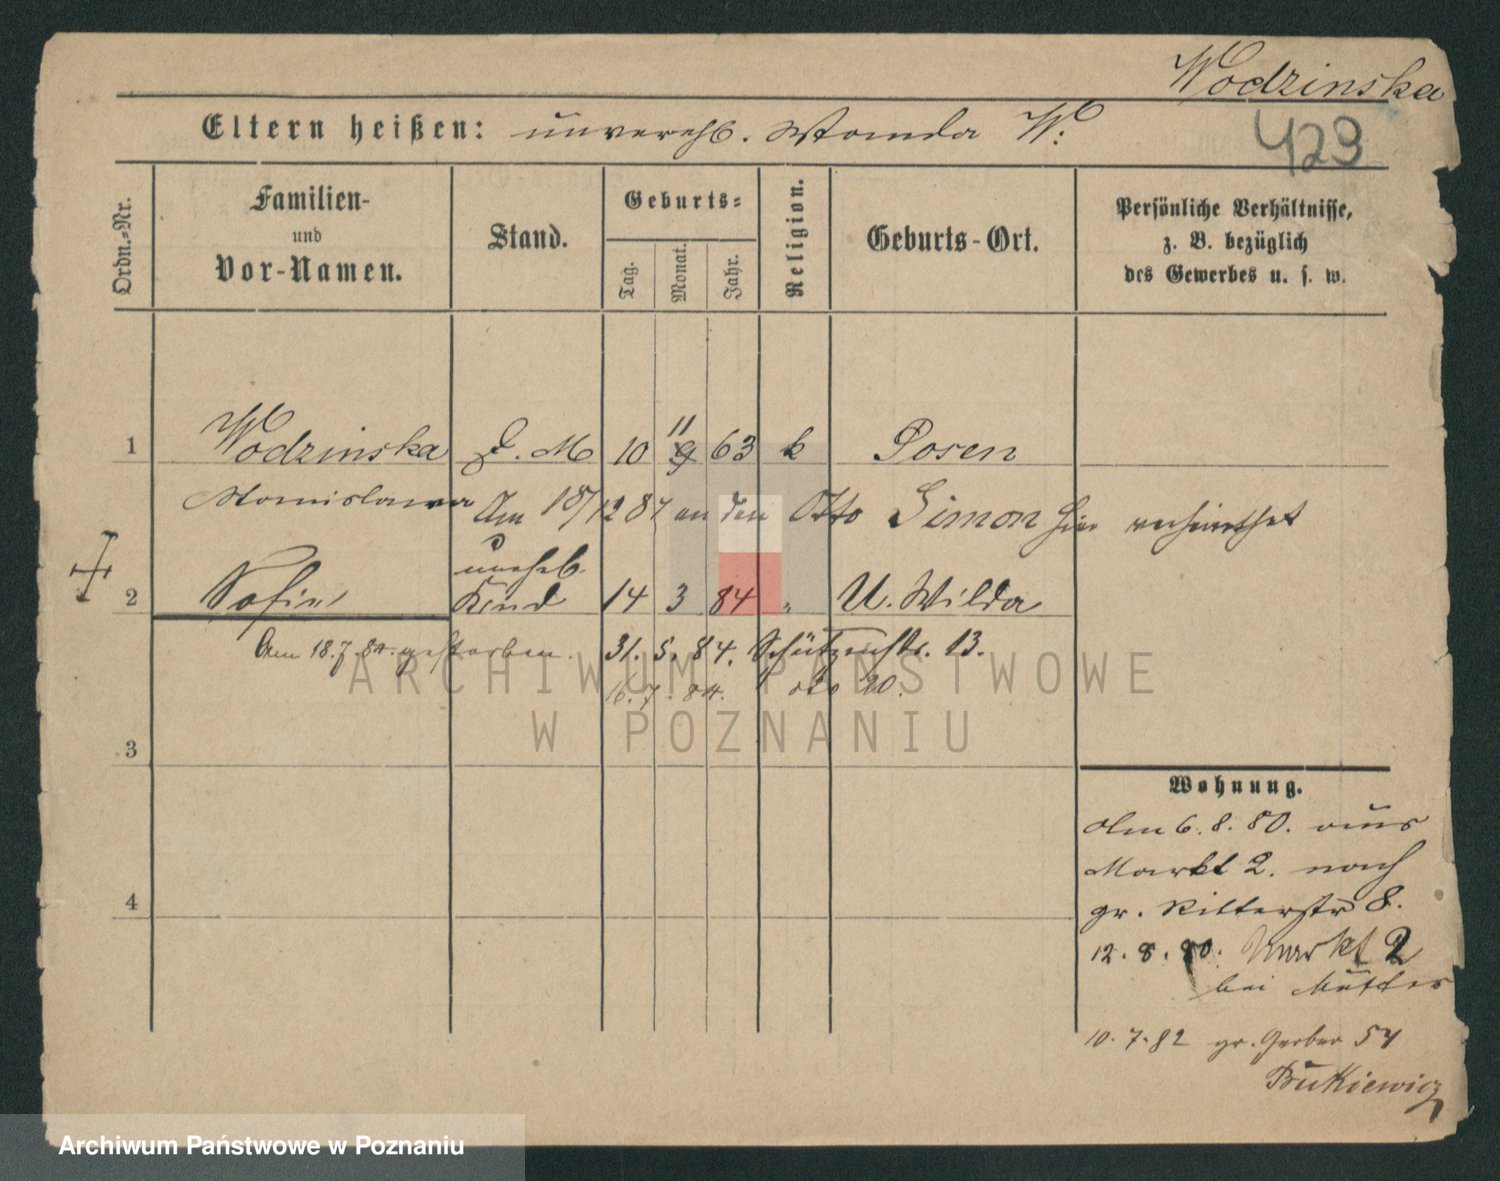 Wodzinska
Eltern heißen: unverehl. Wanda W.
429
Ordn.-Nr.
Familien-
und
Vor-Namen.
Stand.
Geburts-
Tag.
Monat.
Jahr.
Religion.
Geburts-Ort.
Persönliche Verhältnisse,
z. B. bezüglich
des Gewerbes u. s. w.
11
1 Wodzinska D. M 10 9 63 k Posen
Stanislawa Am 18/12 87 an den Otto Simon hier verheirathet
unehel.
2 Sofie Kind 14 3 84 " U. Wilda
Am 18.7.84. gestorben. 31. 5. 84. Schützenstr. 13.
16. 7. 84. dto 20.
3
4
Wohnung.
Am 6. 8. 80. aus
Markt 2. nach
gr. Ritterstr 8.
12. 8. 80. Markt 2
bei Mutter
10. 7. 82 gr. Gerber 54
Bukiewicz
ARCHIWUM PAŃSTWOWE
W POZNANIU
Archiwum Państwowe w Poznaniu